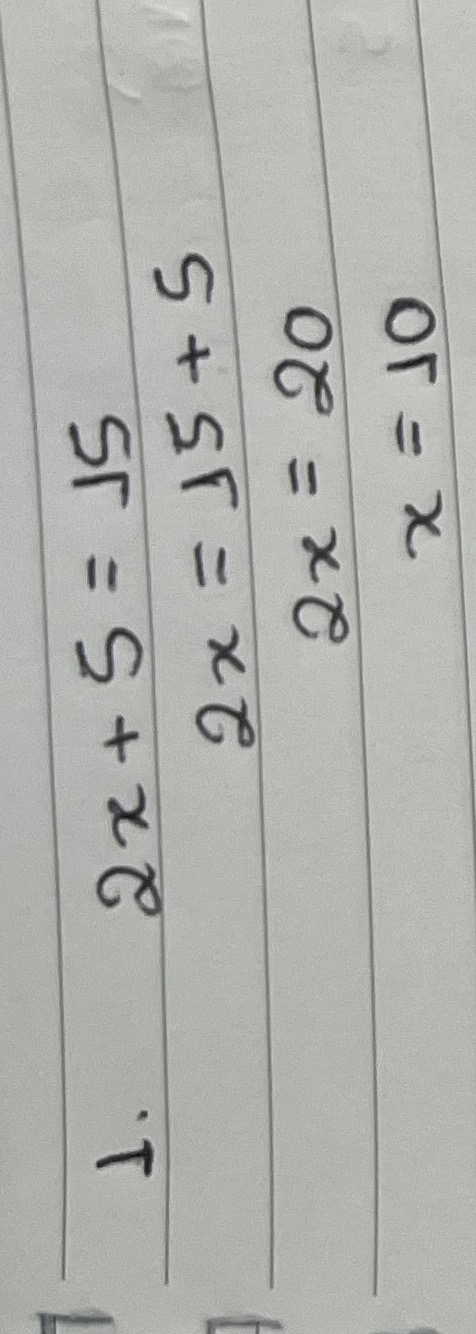 1. 2x + 5 = 15
2x = 15 + 5
2x = 20
x = 10